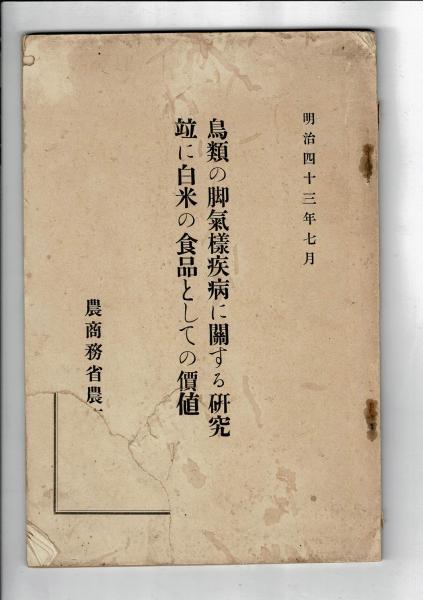 明治四十三年七月
鳥類の脚氣樣疾病に關する研究
竝に白米の食品としての價値
農商務省農